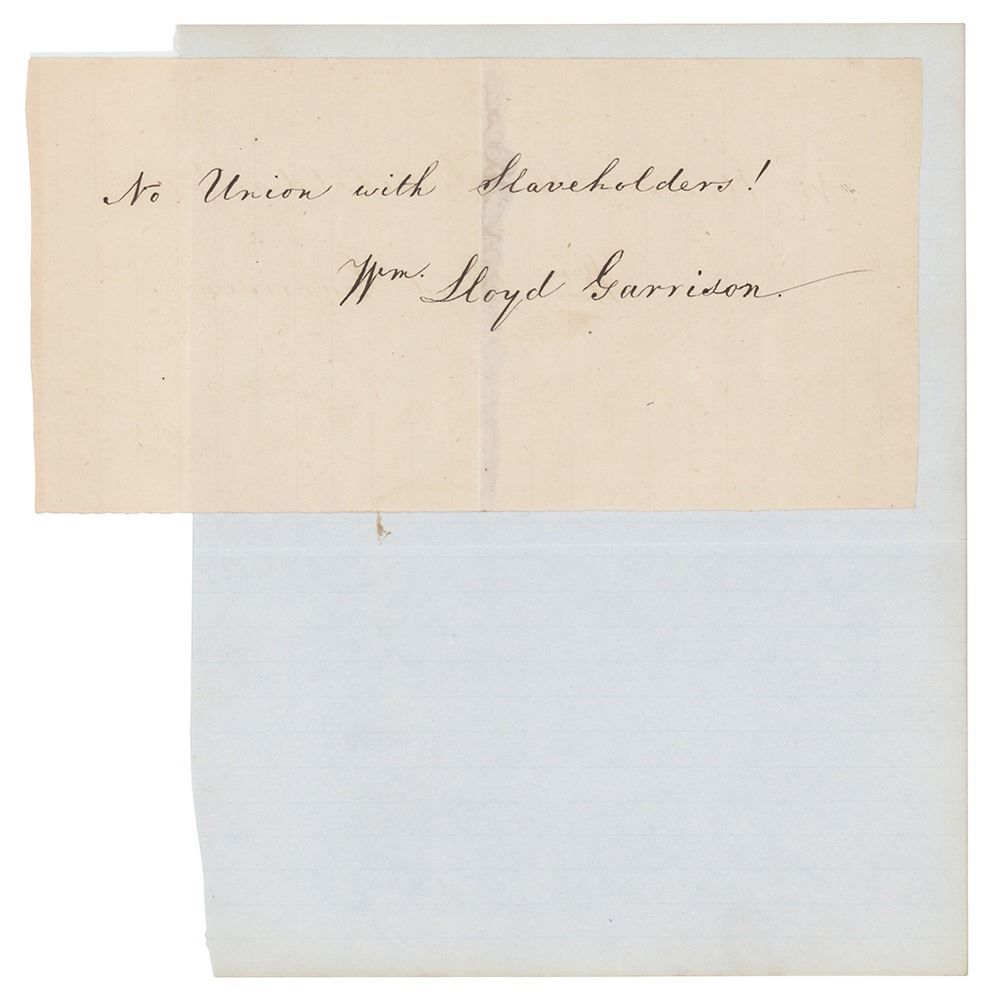 No Union with Slaveholders!
Wm. Lloyd Garrison.